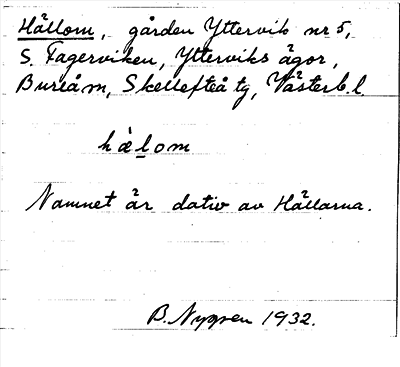 Hällom, gården Yttervik nr 5,
S. Fagerviken, Ytterviks ägor,
Bureå sn, Skellefteå tg, Västerb. l.
hälom
Namnet är dativ av Hällarna.
B. Nygren 1932.